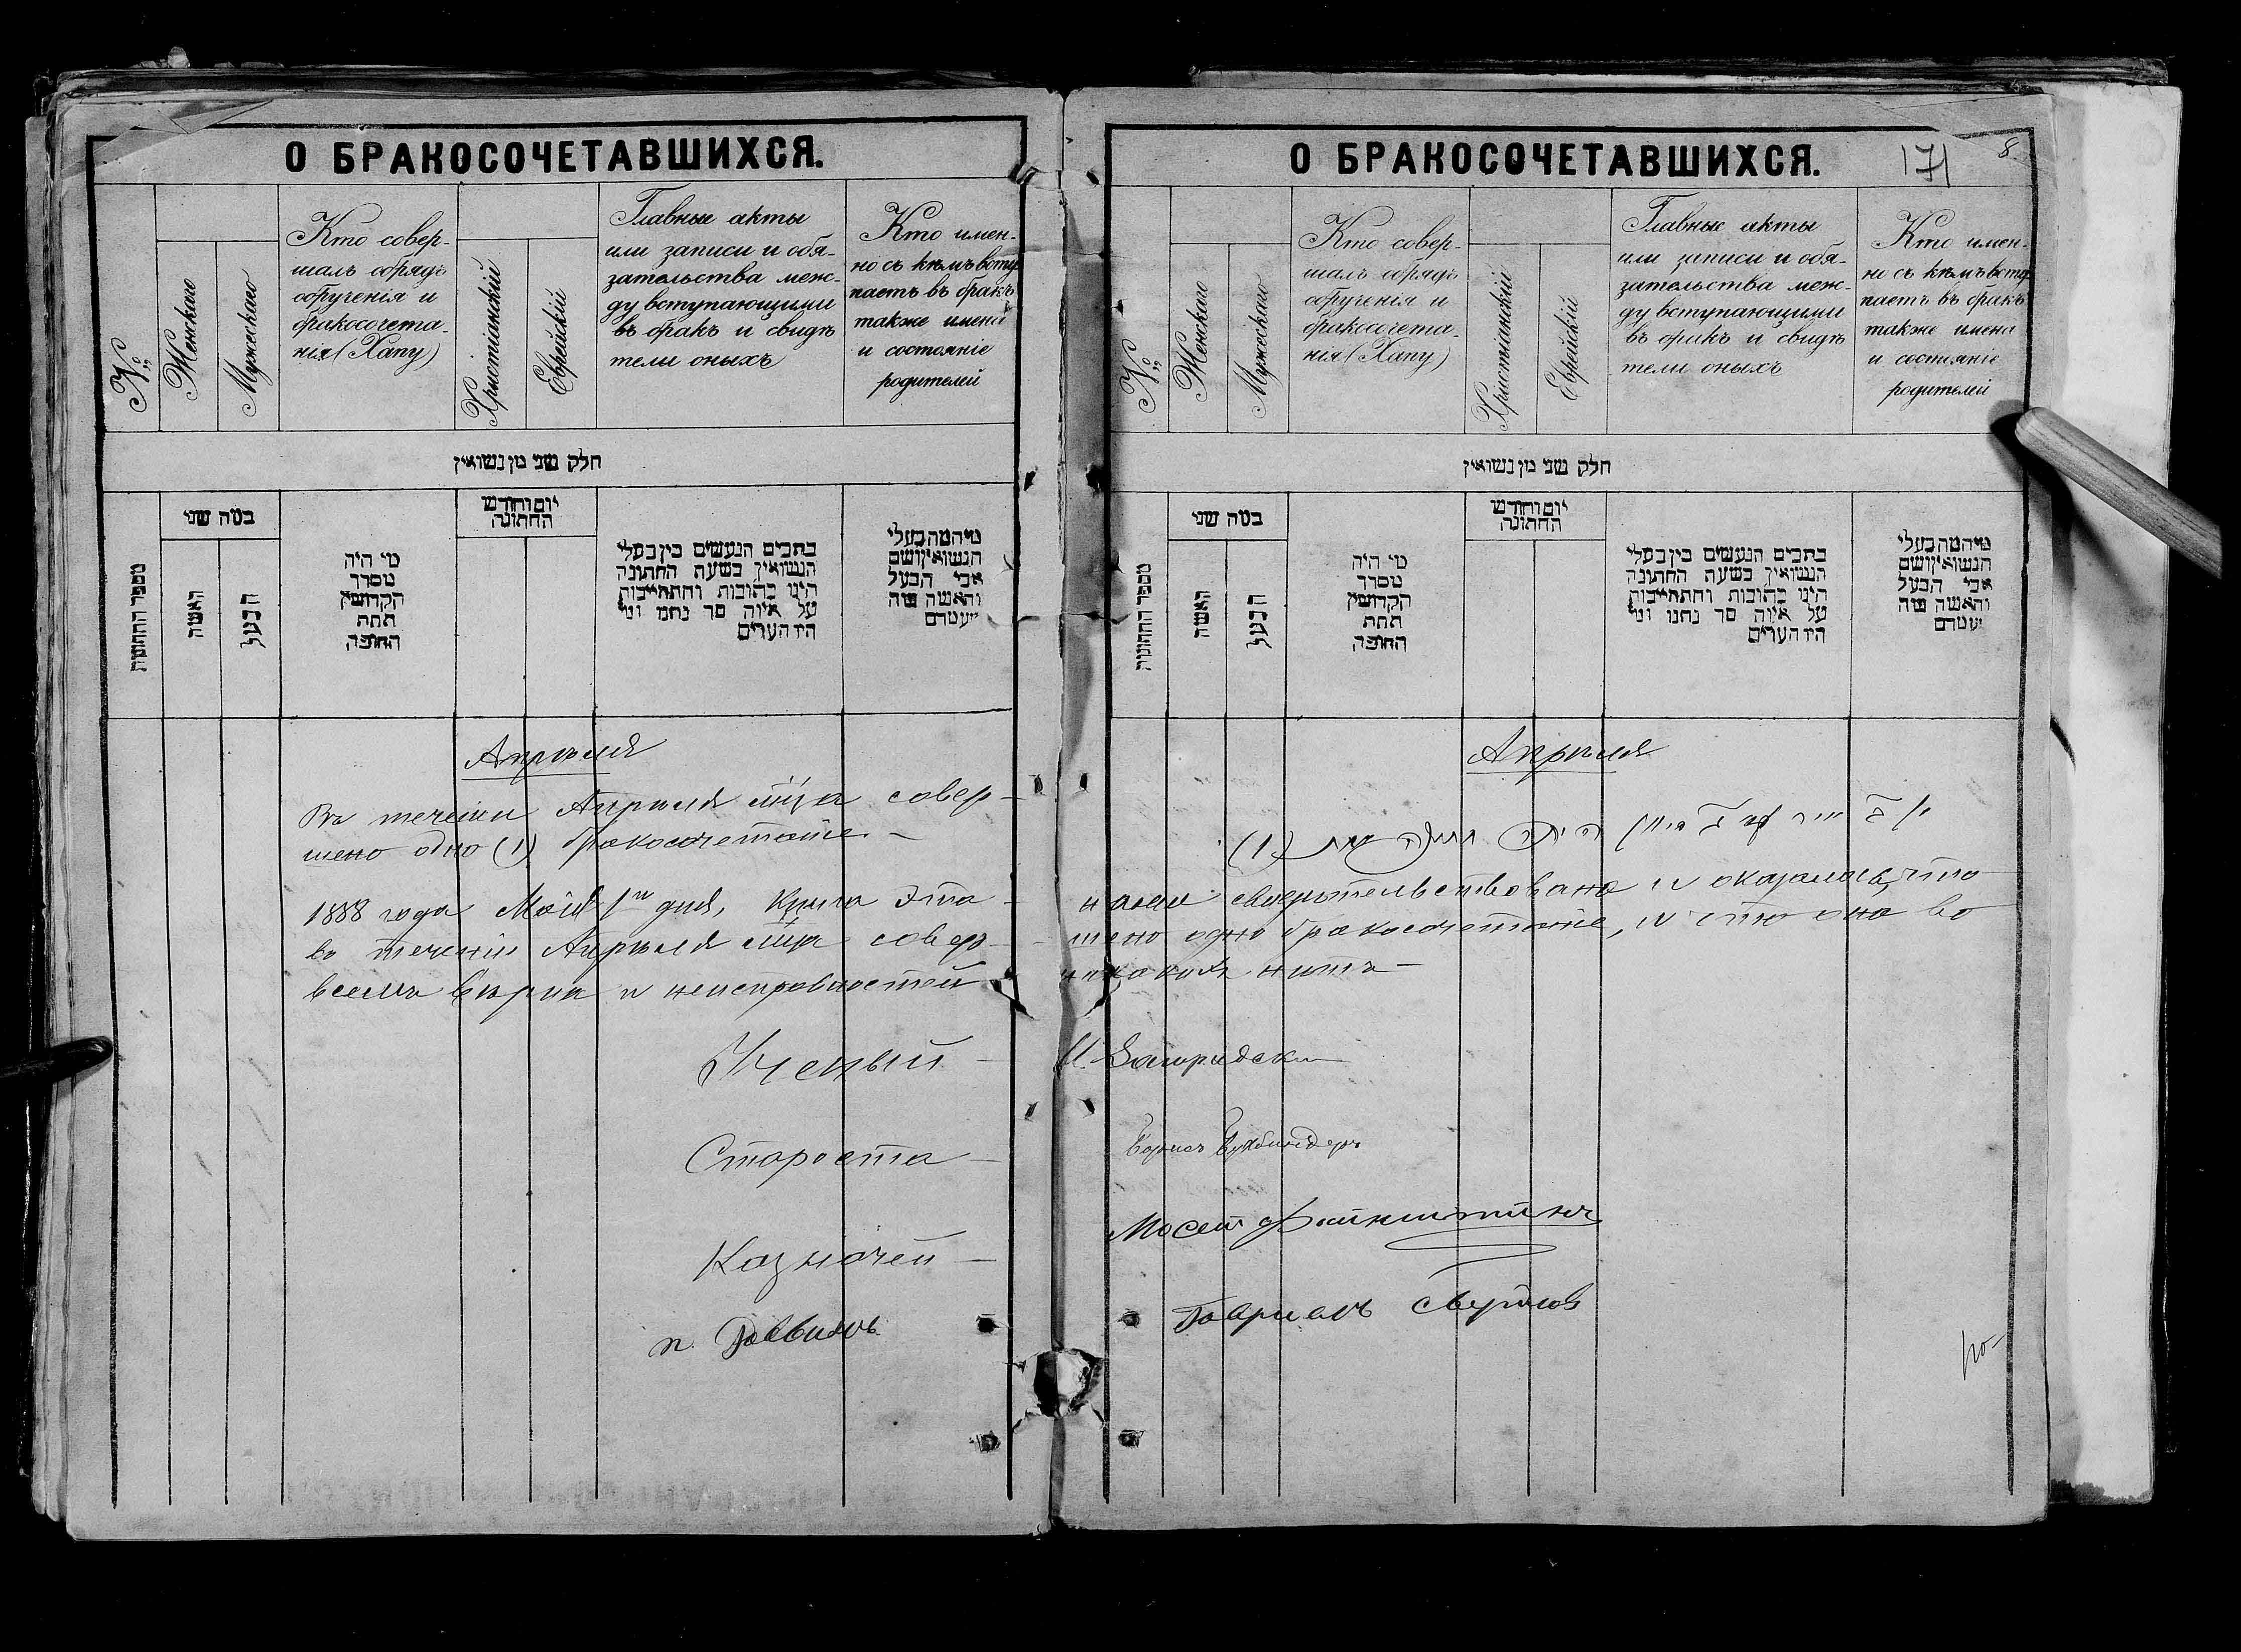 О БРАКОСОЧЕТАВШИХСЯ.
№
Женскаго
Мужескаго
Кто совер-
шалъ обрядъ
обрученія и
бракосочета-
нія (Хапу)
Христіанскій
Еврейскій
Главные акты
или записи и обя-
зательства меж-
ду вступающими
въ бракъ и свидѣ
тели оныхъ
Кто имен-
но съ кѣмъ всту
паетъ въ бракъ
также имена
и состояніе
родителей
חלק שני מן נשואין
מספר החתונות
כמה שני
האשה
הבעל
מי היה
מסדר
הקדושין
תחת
החופה
יום וחודש
החתונה
כתבים הנעשים בין בעלי
הנשואין בשעת החתונה
היינו כתובות והתחייבות
על איזה סך נתנו ומי
היו העדים
מי המה בעלי
הנשואין ושם
אבי הבעל
והאשה מה
מעמדם
Апрѣля
Въ теченіи Апрѣля м-ца совер-
шено одно (1) бракосочетаніе. –
1888 года Мая 1го дня, Книга эта
во теченіи Апрѣля м-ца совер-
всемъ вѣрна и неисправностей
Ученый –
Староста –
Казначей –
О БРАКОСОЧЕТАВШИХСЯ.
171
8.
№
Женскаго
Мужескаго
Кто совер-
шалъ обрядъ
обрученія и
бракосочета-
нія (Хапу)
Христіанскій
Еврейскій
Главные акты
или записи и обя-
зательства меж-
ду вступающими
въ бракъ и свидѣ
тели оныхъ
Кто имен-
но съ кѣмъ всту
паетъ въ бракъ
также имена
и состояніе
родителей
חלק שני מן נשואין
מספר החתונות
כמה שני
האשה
הבעל
מי היה
מסדר
הקדושין
תחת
החופה
יום וחודש
החתונה
כתבים הנעשים בין בעלי
הנשואין בשעת החתונה
היינו כתובות והתחייבות
על איזה סך נתנו ומי
היו העדים
מי המה בעלי
הנשואין ושם
אבי הבעל
והאשה מה
מעמדם
Апрѣля
(1)
нами свидѣтельствована и оказалось, что
шено одно бракосочетаніе, и что она во
никакихъ нѣтъ –
Борисъ Букбиндеръ
Мосей Файнштейнъ
Гавриилъ